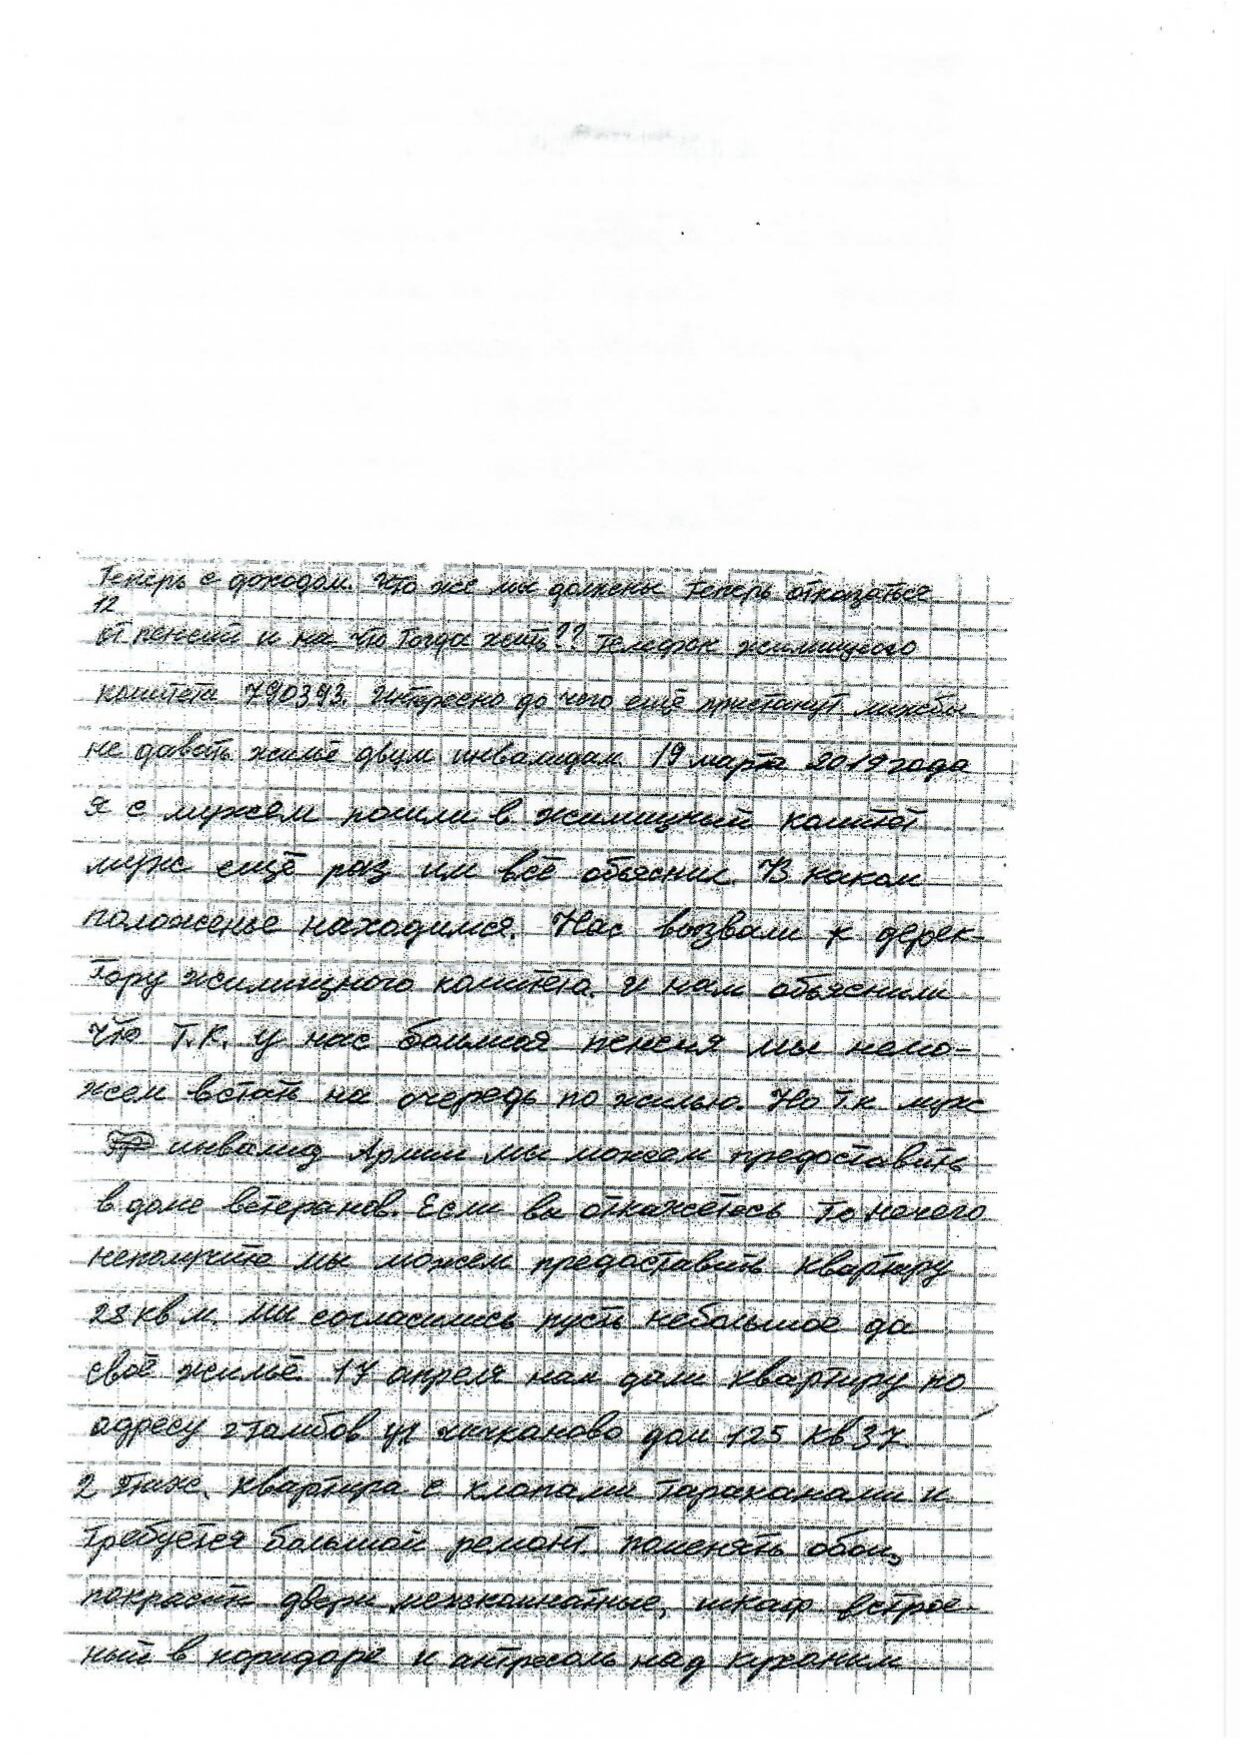 Теперь с доходом. Что же мы должны теперь отказаться
12
от пенсий и на что тогда жить?? Телефон жилищного
комитета 790393. Интересно до чего ещё пристанут лижбы
не давать жильё двум инвалидам 19 марта 2019 года
я с мужем пошли в жилищный комитет
муж ещё раз им всё обьяснил. В каком
положенье находимся. Нас вызвали к дерек-
тору жилищного комитета. И нам обьяснили
что т.к. у нас большая пенсия мы немо-
жем встать на очередь по жилью. Но т.к муж
инвалид Армии мы можем предоставить
в доме ветеранов. Если вы откажетесь то нечего
неполучите мы можем предоставить квартиру
28 кв м. Мы согласились пусть небольшое да
своё жильё. 17 апреля нам дали квартиру по
адресу г Тамбов ул дом 125 кв 37.
2 этаж. Квартира с клопами тараканами и
требуется большой ремонт поменять обои,
покрасить двери межкомнатные, шкаф встрое-
ный в коридоре и антресоль над